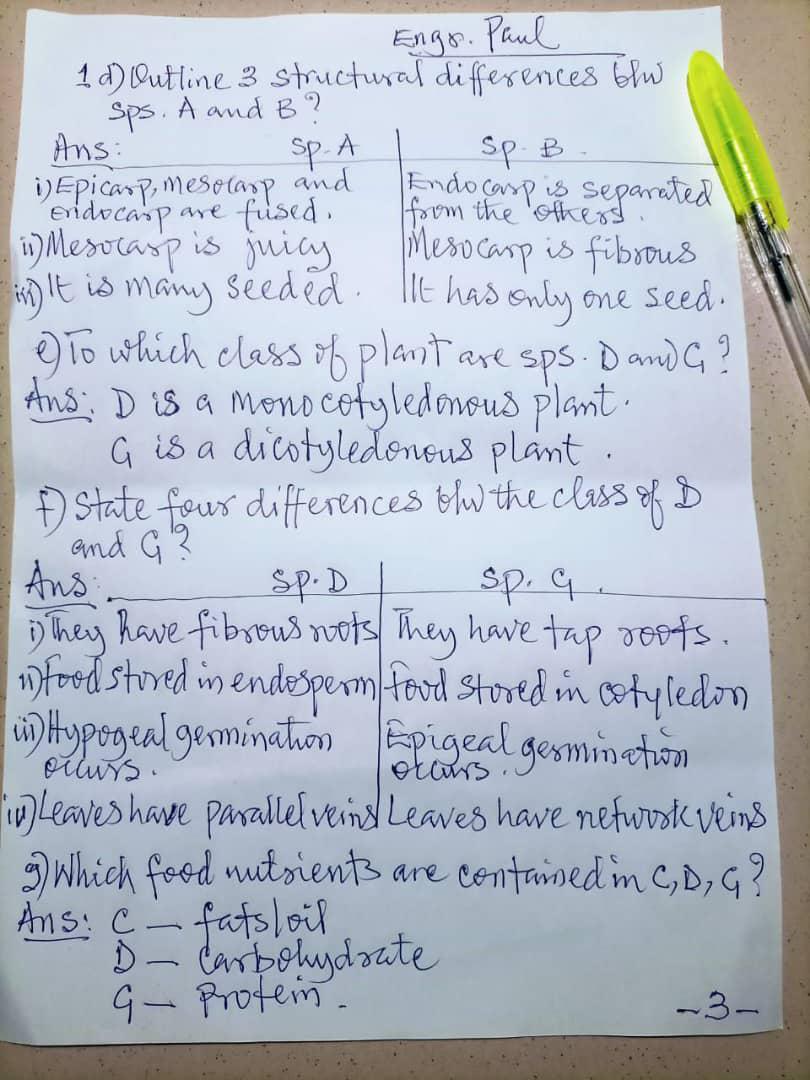 Engr. Paul
1 d) Outline 3 structural differences b/w
sps. A and B?
Ans: sp. A sp. B.
i) Epicarp, mesocarp and Endocarp is separated
endocarp are fused. from the others.
ii) Mesocarp is juicy Mesocarp is fibrous
iii) It is many seeded. It has only one seed.
e) To which class of plant are sps. D and G?
Ans: D is a monocotyledonous plant.
G is a dicotyledonous plant.
f) State four differences b/w the class of D
and G?
Ans: sp. D sp. G.
i) They have fibrous roots They have tap roots.
ii) food stored in endosperm food stored in cotyledon
iii) Hypogeal germination Epigeal germination
occurs. occurs.
iv) Leaves have parallel veins Leaves have network veins
g) Which food nutrients are contained in C, D, G?
Ans: C - fats/oil
D - Carbohydrate
G - Protein.
-3-